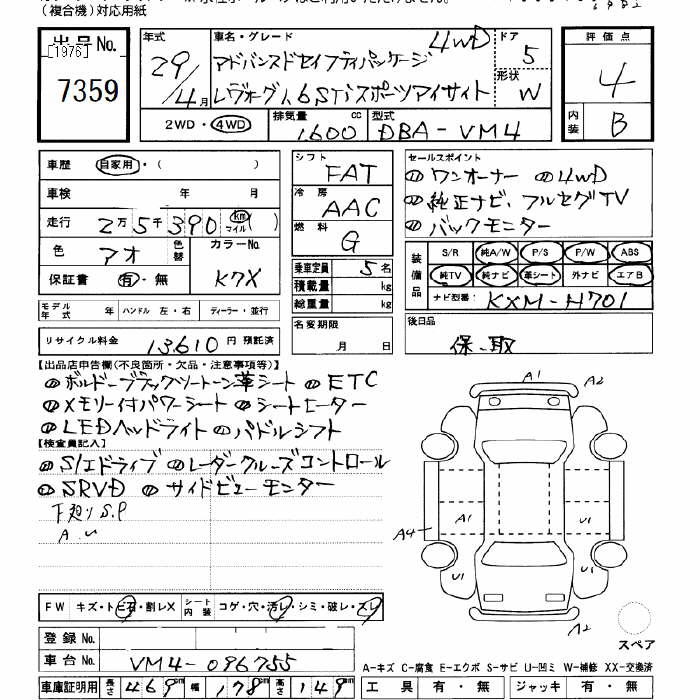 (複合機)対応用紙
出品No.
[1976]
7359
年式 29/4月
車名・グレード 4WD
アドバンスドセイフティパッケージ
レヴォーグ1.6STiスポーツアイサイト
ドア 5
形状 W
2WD・4WD
排気量 1600 cc
型式 DBA-VM4
評価点 4
内装 B
車歴 自家用・( )
車検 年 月
走行 2万5千390 km マイル( )
色 アオ 色替 カラーNo. K7X
保証書 有・無
モデル年式 年 ハンドル 左・右 ディーラー・並行
リサイクル料金 13610円 預託済
シフト FAT
冷房 AAC
燃料 G
乗車定員 5名
積載量 kg
総重量 kg
名変期限 月 日
セールスポイント
ワンオーナー 4WD
純正ナビ、フルセグTV
バックモニター
装備品
S/R 純A/W P/S P/W ABS
純TV 純ナビ 革シート 外ナビ エアB
ナビ型番: KXM-H701
後日品
保、取
【出品店申告欄(不良箇所・欠品・注意事項等)】
ボルドーブラックツートーン革シート ETC
メモリー付パワーシート シートヒーター
LEDヘッドライト パドルシフト
【検査員記入】
SIドライブ レーダークルーズコントロール
SRVD サイドビューモニター
下廻りS.P
A.U
A1 A2
A4 A1 U1
U1 U1
A2
スペア
FW キズ・トビ石・割レX シート内装 コゲ・穴・汚レ・シミ・破レ・スレ
登録No.
車台No. VM4-096755
車庫証明用 長さ 469cm 幅 178cm 高さ 149cm
A-キズ C-腐食 E-エクボ S-サビ U-凹ミ W-補修 XX-交換済
工具 有・無 ジャッキ 有・無